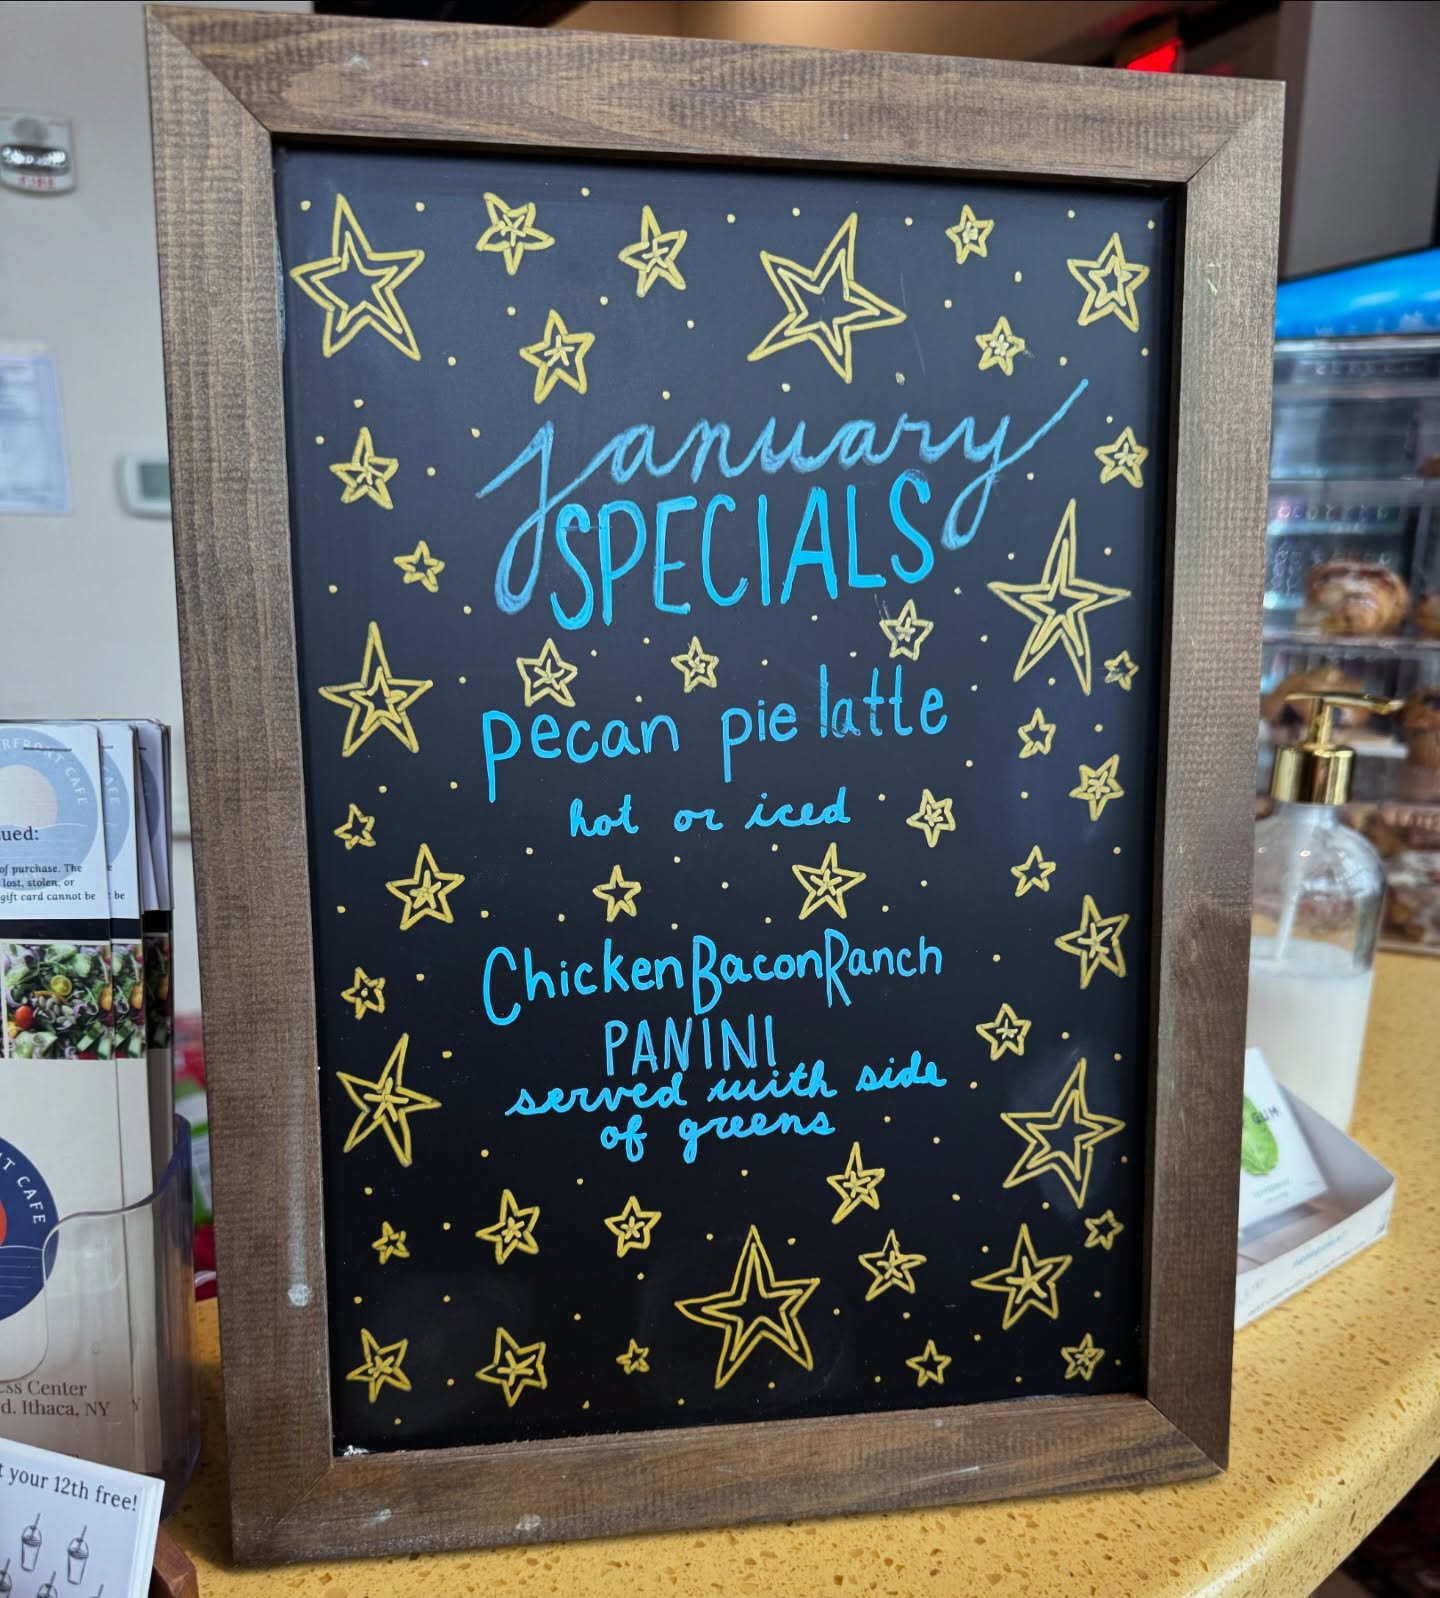 january
SPECIALS
pecan pie latte
hot or iced
Chicken Bacon Ranch
PANINI
served with side
of greens
CAFE
of purchase. The
lost, stolen, or
gift card cannot be
be
CAFE
Center
Ithaca, NY
your 12th free!
GUM
FIRE